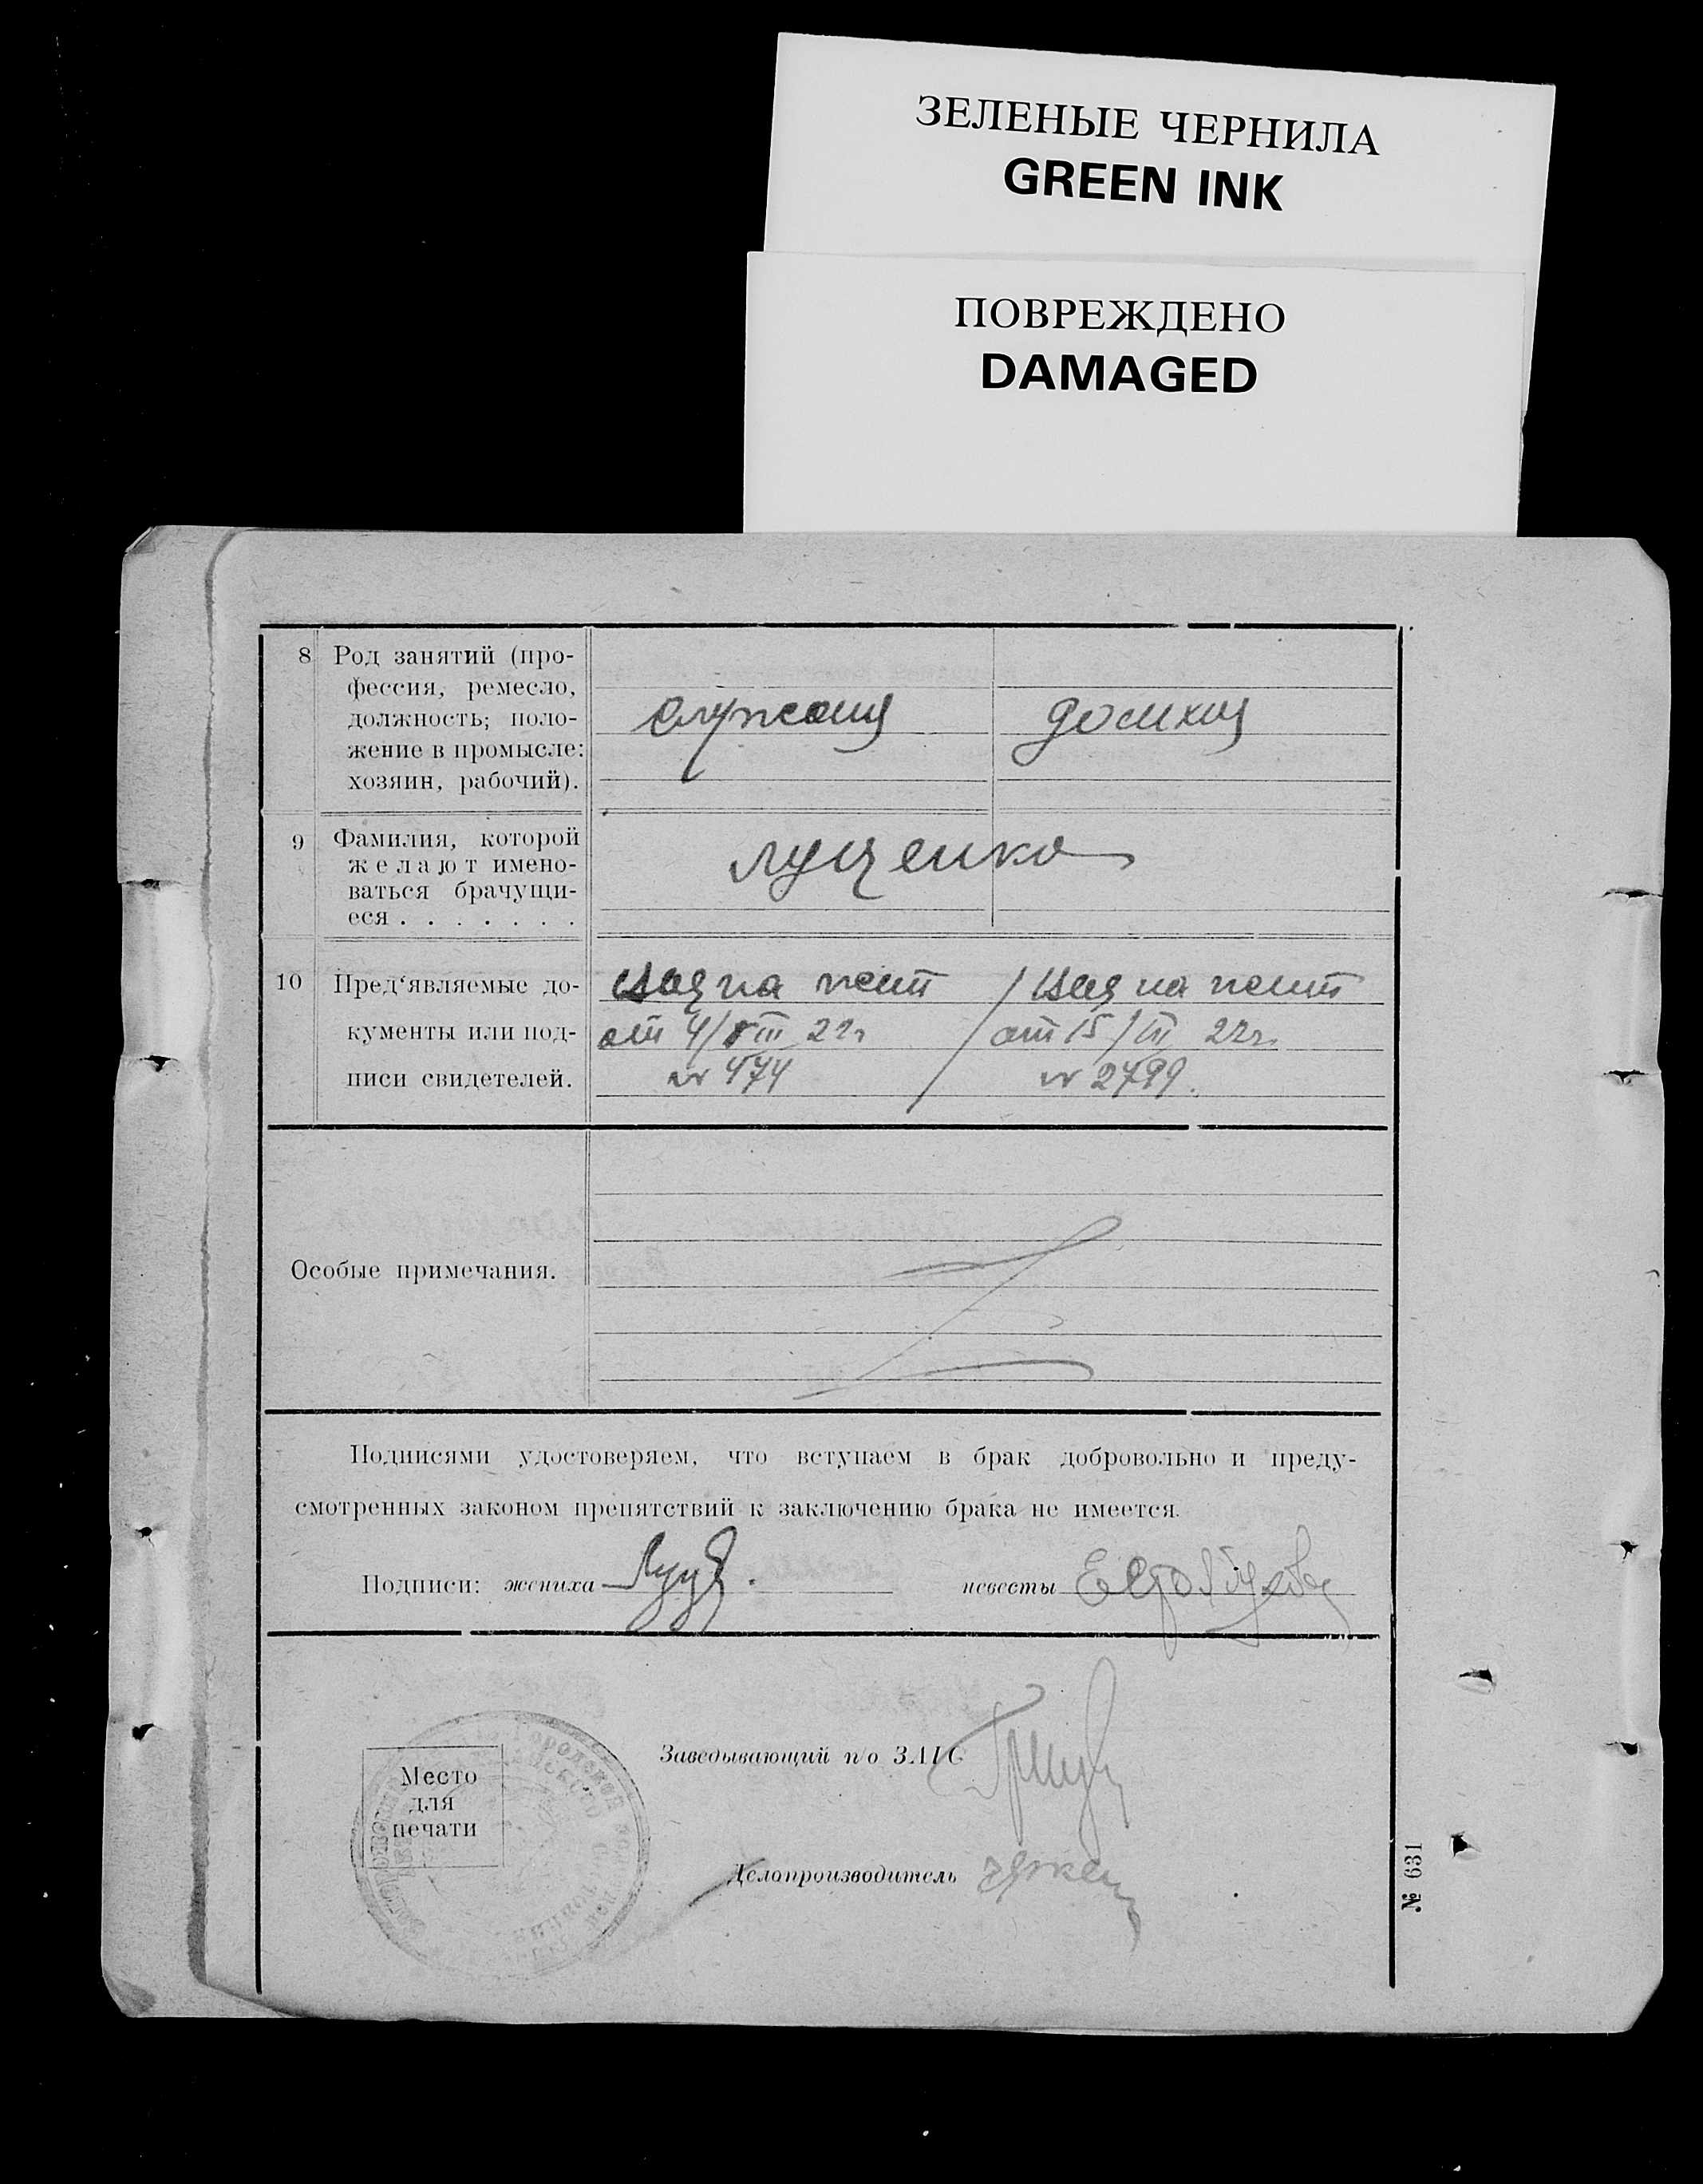 ЗЕЛЕНЫЕ ЧЕРНИЛА
GREEN INK
ПОВРЕЖДЕНО
DAMAGED
8 Род занятий (про-
фессия, ремесло,
должность; поло-
жение в промысле:
хозяин, рабочий).
служащ домхоз
9 Фамилия, которой
желают имено-
ваться брачущи-
еся . . . . . . .
Луценко
10 Пред‘являемые до-
кументы или под-
писи свидетелей.
на жит / на жит
от 4/VIII 22г / от 15/III 22г.
№ 474 / № 2799.
Особые примечания.
Подписями удостоверяем, что вступаем в брак добровольно и преду-
смотренных законом препятствий к заключению брака не имеется.
Подписи: жениха невесты
Заведывающий п/о ЗАГС
Место
для
печати
Делопроизводитель
№ 631